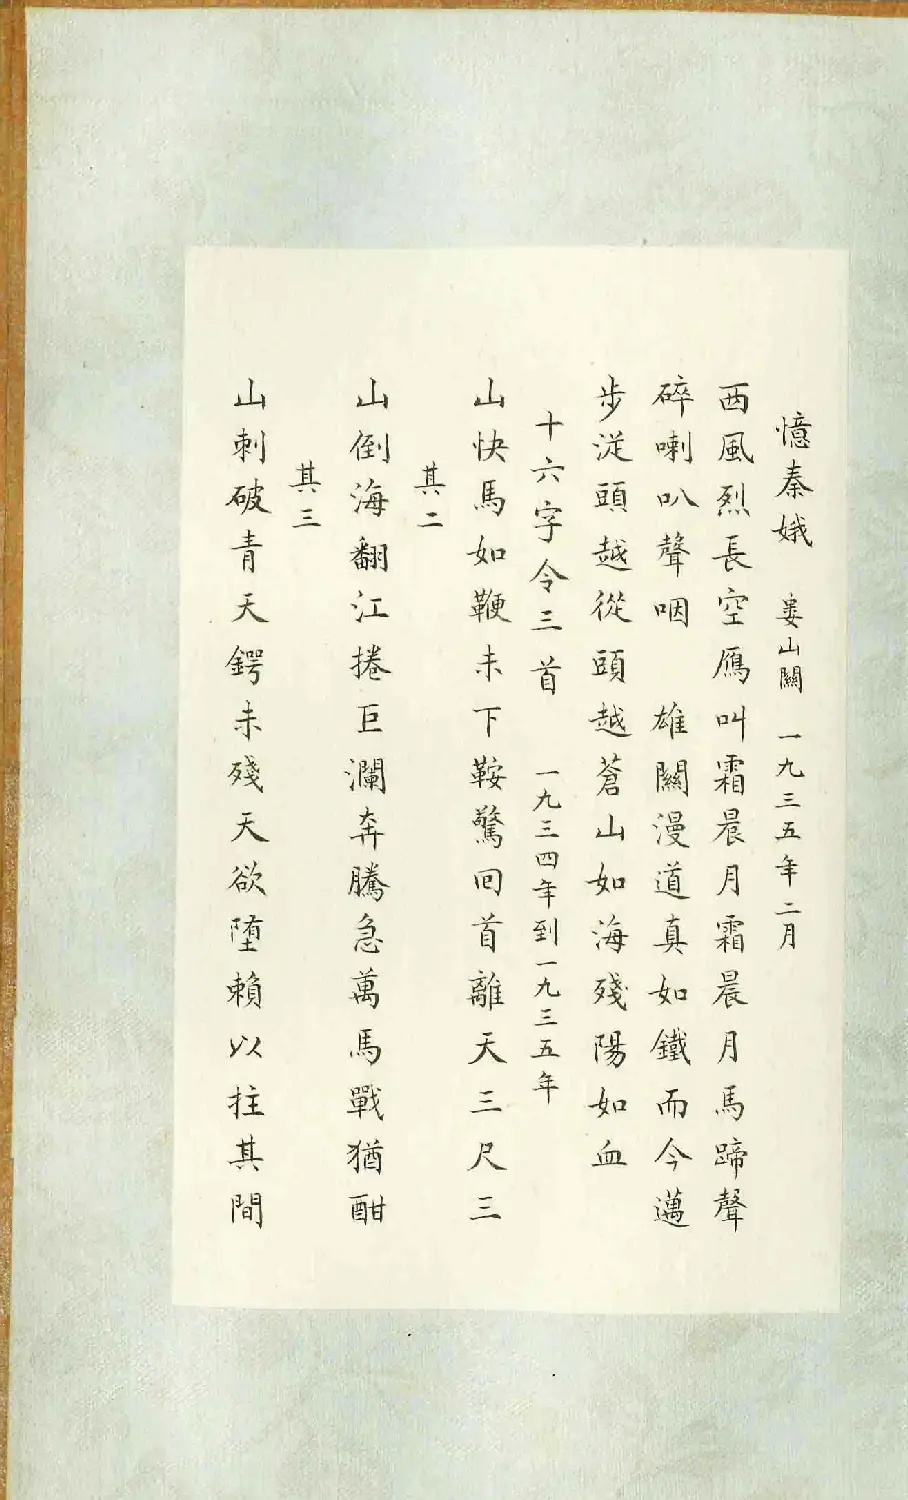 憶秦娥 婁山關 一九三五年二月
西風烈長空鴈叫霜晨月霜晨月馬蹄聲
碎喇叭聲咽 雄關漫道真如鐵而今邁
步從頭越從頭越蒼山如海殘陽如血
十六字令三首 一九三四年到一九三五年
山快馬如鞭未下鞍驚回首離天三尺三
其二
山倒海翻江捲巨瀾奔騰急萬馬戰猶酣
其三
山刺破青天鍔未殘天欲堕賴以拄其間